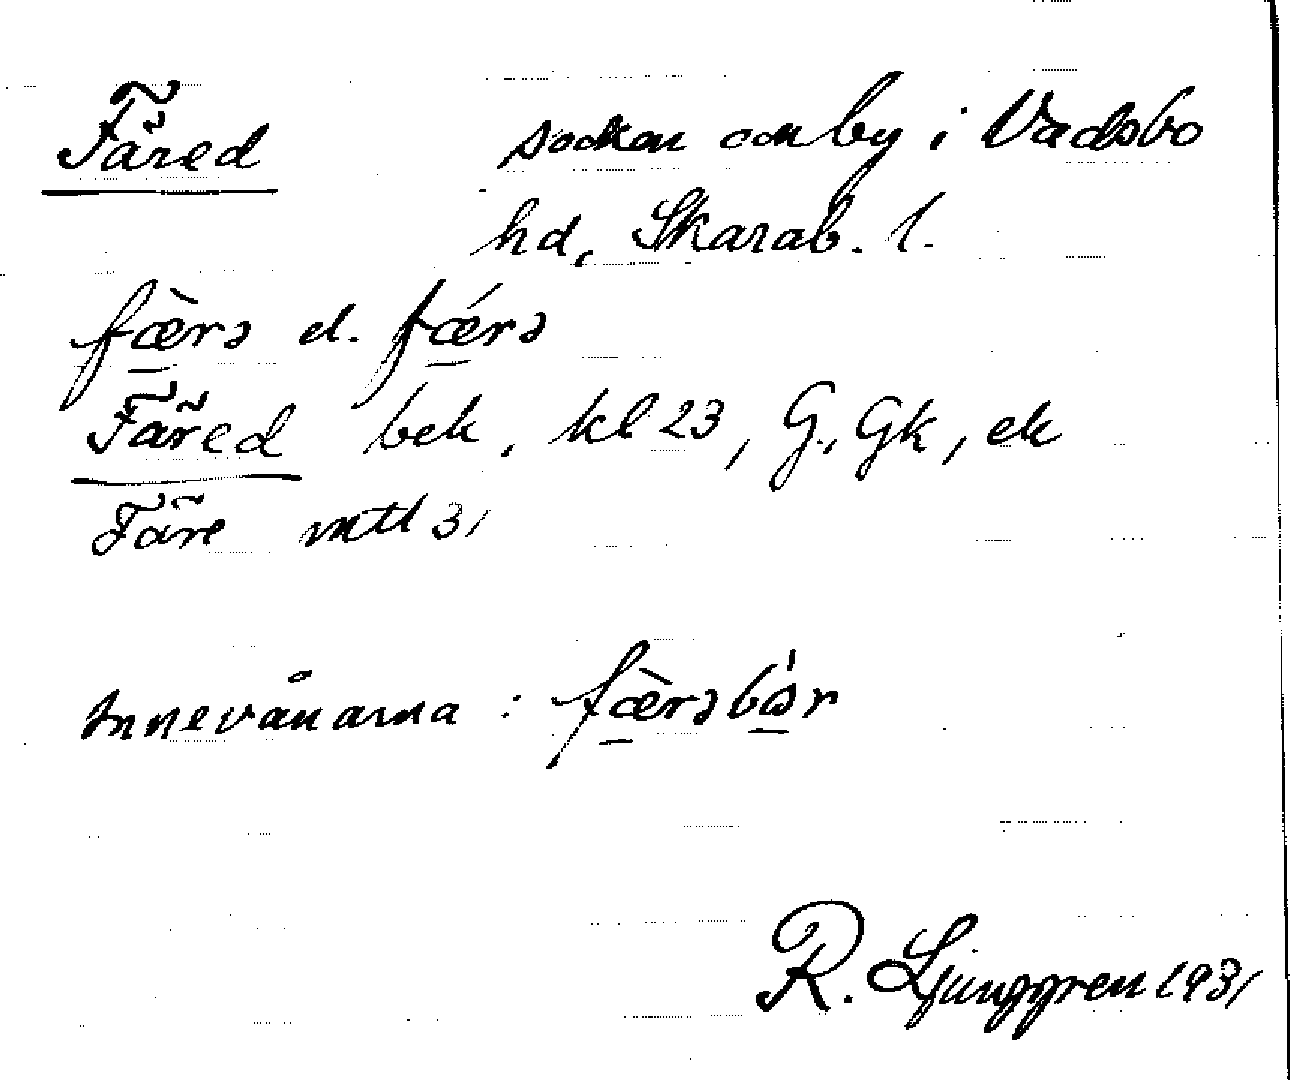 Färed socken o by i Vadsbo
hd, Skarab. l.
fæ̀rə el. fǽrə
Färed bek, kl 23, G., Gk, ek
Färe mtl 31
Innevånarna : fæ̀rəbör
R. Ljunggren 1931